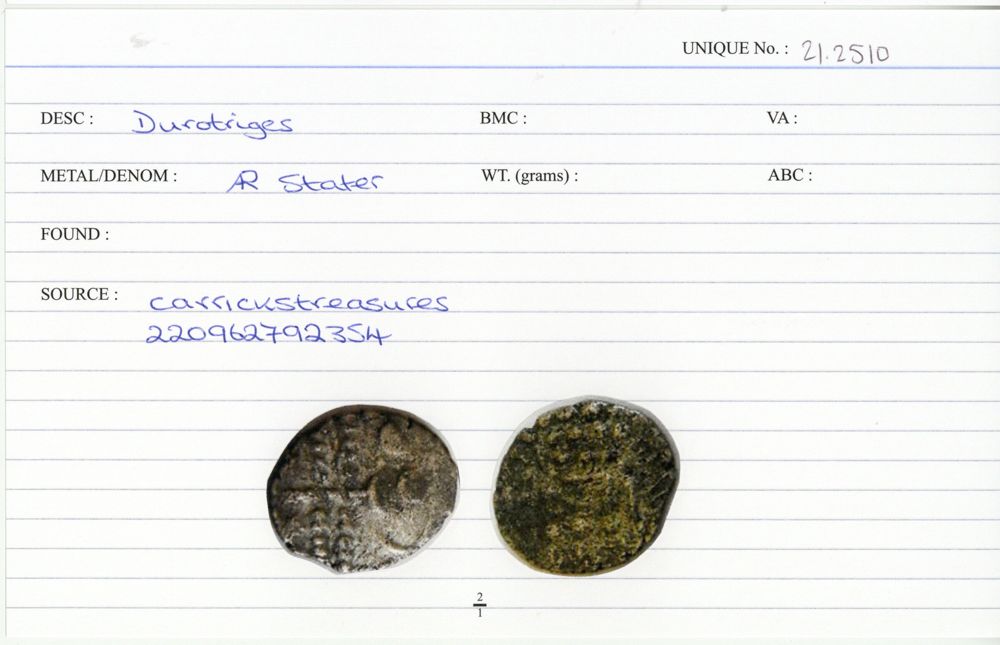 UNIQUE No. : 21.2510
DESC : Durotriges BMC : VA :
METAL/DENOM : AR Stater WT. (grams) : ABC :
FOUND :
SOURCE : carrickstreasures
220962792354
2
1